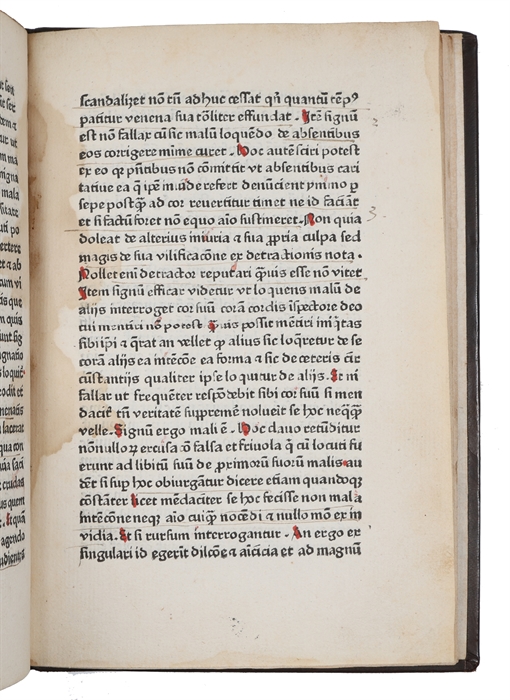 scandalizet nō tñ ad huc cessat qñ quantū tēpꝰ
patitur venena sua tōliter effundat. Itē signū
est nō fallax cū sic malū loquēdo de absentibus
eos corrigere mīme curet. Hoc autē sciri potest
ex eo qꝛ pñtibus nō cōmittit vt absentibus cari
tatiue ea
sepe postꝙ ad cor reuertitur timet ne id faciāt
et si factū foret nō equo aīo sustineret. Non quia
doleat de alterius iniuria & sua ꝓpria culpa sed
magis de sua vilificacōne ex detractionis nota.
Nollet eni detractor reputari ꝙuis esse nō vitet
Item signū efficax videtur vt loquens malū de
alijs interroget cor suū corā cordis īspectore deo
cui mentiri nō potest ꝙuis possit mētiri
sibi ipi & q̄rat an vellet ꝙ alius sic loq̄retur de se
corā alijs ea intēcōe ea forma & sic de ceteris cir
cūstantijs qualiter ipse loquitur de alijs. Et ni
fallar ut frequenter respōdebit sibi cor suū si men
daciē tñ veritatē supremē noluerit se hoc neqꝙ
velle. Signū ergo mali ē. Hoc clauo retūditur
nōnullorꝝ excusacō falsa et friuola ꝙ cū locuti fu
erunt ad libitū suū de primorū suorū malis au
dēt si sup hoc obiurgantur dicere etiam quandoꝙ
cōstāter licet mēdaciter se hoc fecisse non mala
intēcōne neqꝫ aīo cuiꝙ nocēdi & nullo mō ex in
vidia. Et si rursum interrogantur. An ergo ex
singulari id egerīt dilcōne & aīcicia et ad magnū